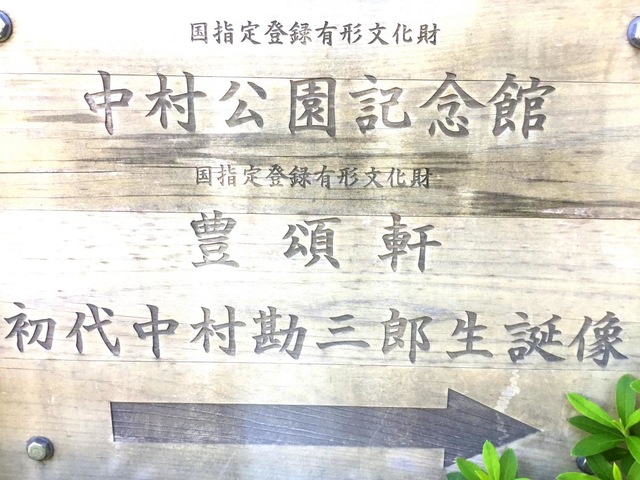 国指定登録有形文化財
中村公園記念館
国指定登録有形文化財
豊頌軒
初代中村勘三郎生誕像